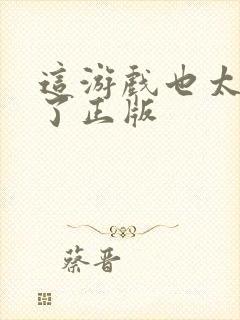 這游戲也太
了正版
蔡晋